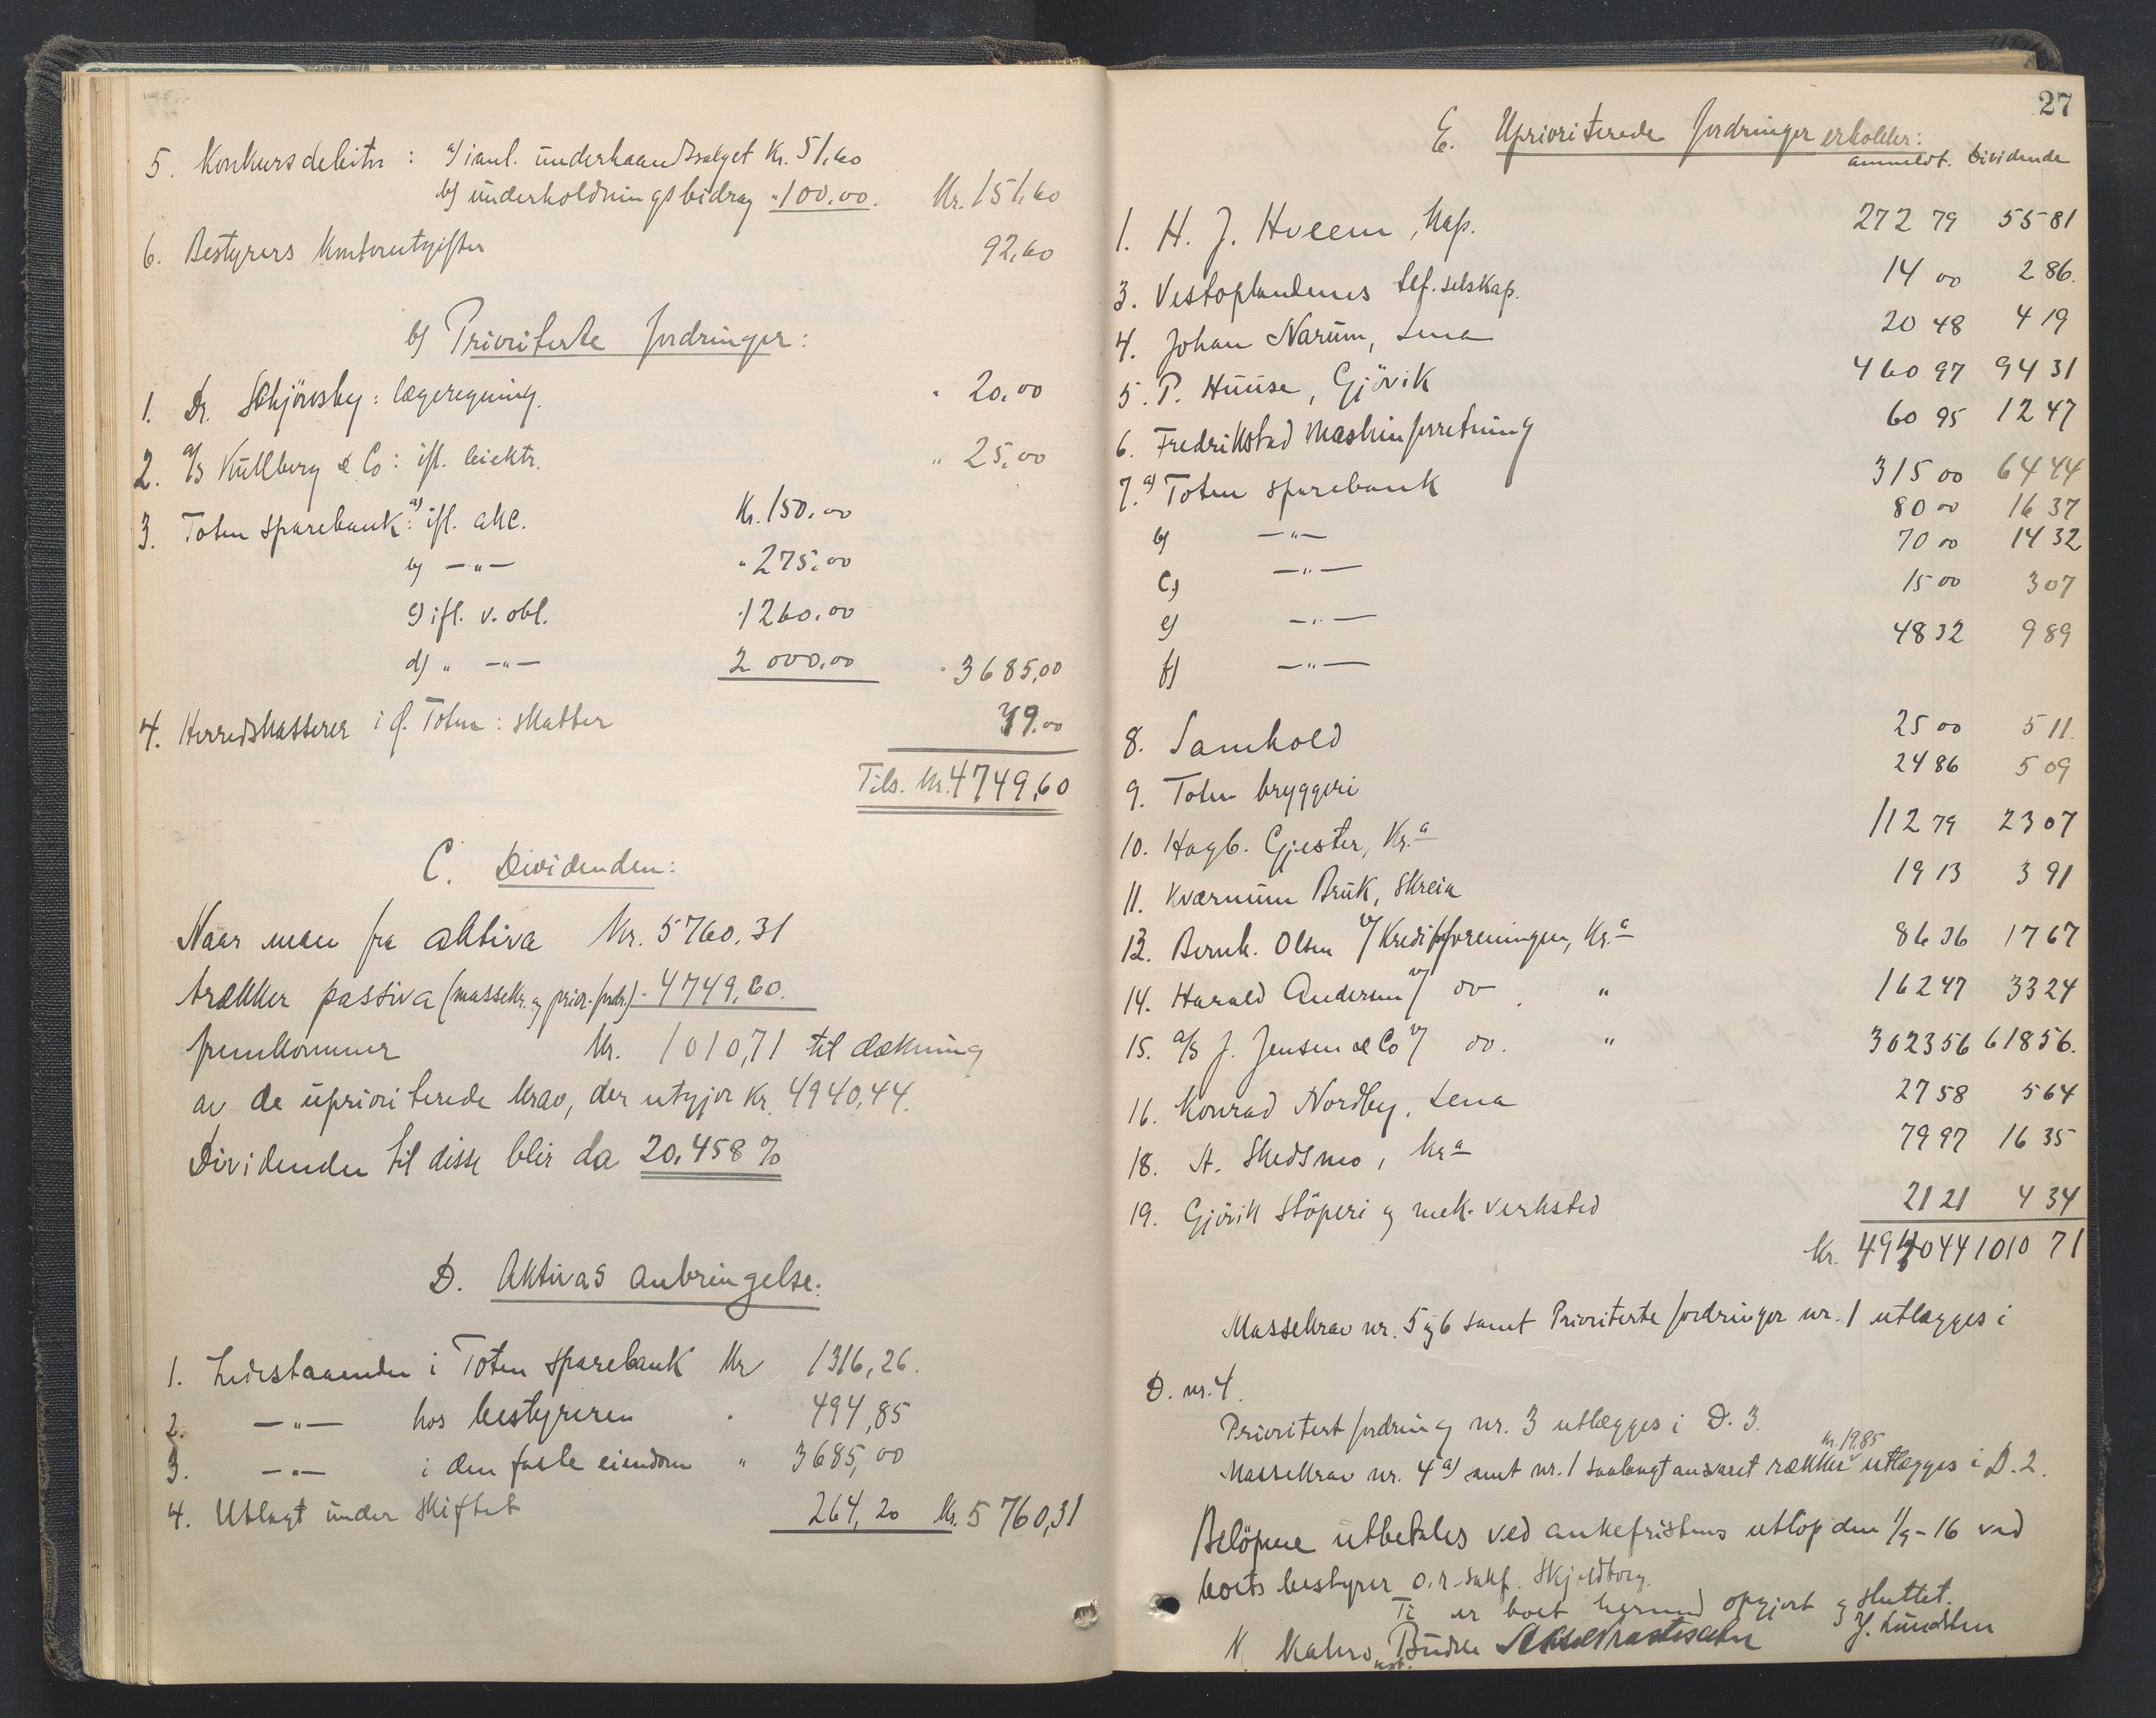 5. Konkursdebitor: a) ianl. underhaandssalget Kr. 51,60
b) underholdningsbidrag " 100,00. Kr. 151,60
6. Bestyrers kontorutgifter 92,60
b) Prioriterte fordringer:
1. Dr. Skjönsby: lægeregning. " 20,00
2. A/S Kullberg & Co: ifl. leiektr. " 25,00
3. Toten sparebank: a) ifl. akc. Kr. 150,00
b) — " — " 275,00
c) ifl. v. obl. " 1260,00
d) " — " — 2 000,00 " 3685,00
4. Herredskasserer i Ø. Toten: skatter 79,00
Tils. Kr. 4749,60
C. Dividenden:
Naar man fra aktiva Kr. 5760,31
trækker passiva (massekr. og prior. fordr.) - 4749,60.
fremkommer Kr. 1010,71 til dækning
av de uprioriterede krav, der utgjør Kr. 4940,44.
Dividenden til disse blir da 20,458 %
D. Aktivas anbringelse:
1. Indestaaende i Toten sparebank Kr 1316,26.
2. — " — hos bestyreren " 494,85
3. — " — i den faste eiendom " 3685,00
4. Utlagt under skiftet 264,20 Kr. 5 760,31
27
E. Uprioriterede fordringer erholder:
anmeldt. Dividende
1. H. J. Hveem, Kap. 272 79 55 81
3. Vestoplandenes tlf. selskap. 14 00 2 86.
4. Johan Narum, Lena 20 48 4 19
5. P. Huuse, Gjövik 460 97 94 31
6. Fredrikstad Maskinforretning 60 95 12 47
7. a) Toten sparebank 315 00 64 44
b) — " — 80 00 16 37
c) — " — 70 00 14 32
e) — " — 15 00 3 07
f) — " — 48 32 9 89
8. Samhold 25 00 5 11.
9. Toten bryggeri 24 86 5 09
10. Hagb. Gjester, Kr.a 112 79 23 07
11. Kværnum Bruk, Skreia 19 13 3 91
13. Bernh. Olsen v/ Kreditforeningen, Kr.a 86 36 17 67
14. Harald Andersen v/ do " 162 47 33 24
15. A/S J. Jensen & Co v/ do. " 3023 56 618 56.
16. Konrad Nordby, Lena 27 58 5 64
18. A. Skedsmo, Kra 79 97 16 35
19. Gjövik Stöperi og mek. verksted 21 21 4 34
Kr. 4940 44 1010 71
Massekrav nr. 5 og 6 samt Prioriterte fordringer nr. 1 utlægges i
D. nr. 4.
Prioritert fordring nr. 3 utlægges i D. 3.
kr. 19,85
Massekrav nr. 4 a) samt nr. 1 saalangt ansvaret rækker utlægges i D. 2.
Belöpene utbetales ved ankefristens utlöp den 1/9-16 ved
boets bestyrer o.r.sakf. Skjeldborg.
Ti er boet hermed opgjort og sluttet.
N. Kahrs Budde J. Lundsten